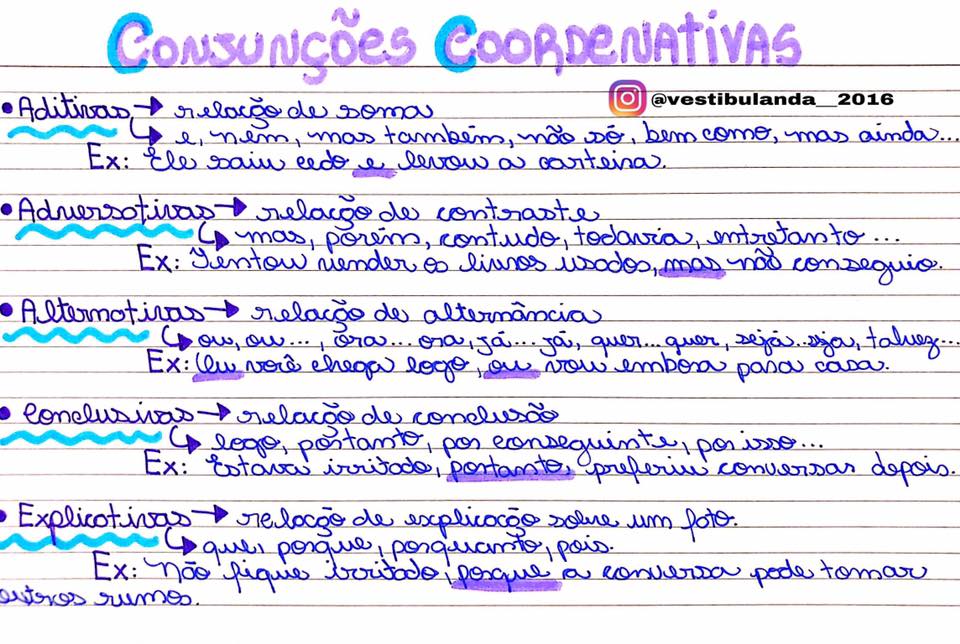 Conjunções Coordenativas
@vestibulanda__2016
• Aditivas → relação de soma
↳ e, nem, mas também, não só, bem como, mas ainda...
Ex: Ele saiu cedo e levou a carteira.
• Adversativas → relação de contraste
↳ mas, porém, contudo, todavia, entretanto ...
Ex: Tentou vender os livros usados, mas não conseguio.
• Alternativas → relação de alternância
↳ ou, ou..., ora... ora, já... já, quer... quer, seja...seja, talvez...
Ex: Ou você chega logo, ou vou embora para casa.
• Conclusivas → relação de conclusão
↳ logo, portanto, por conseguinte, por isso...
Ex: Estava irritado, portanto, preferiu conversar depois.
• Explicativas → relação de explicação sobre um fato.
↳ que, porque, porquanto, pois.
Ex: Não fique irritado, porque a conversa pode tomar
outros rumos.